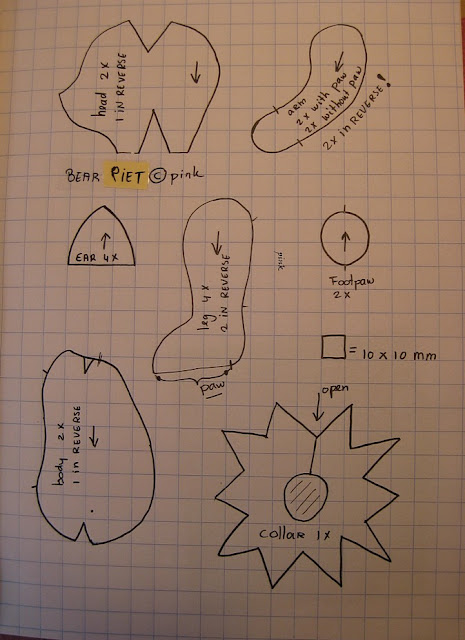 head 2x
1 IN REVERSE
arm
2x with paw
2x without paw
2x IN REVERSE!
BEAR PIET © pink
EAR 4X
leg 4x
2 IN REVERSE
paw
pink
Footpaw
2x
= 10 x 10 mm
body 2x
1 IN REVERSE
open
Collar 1x